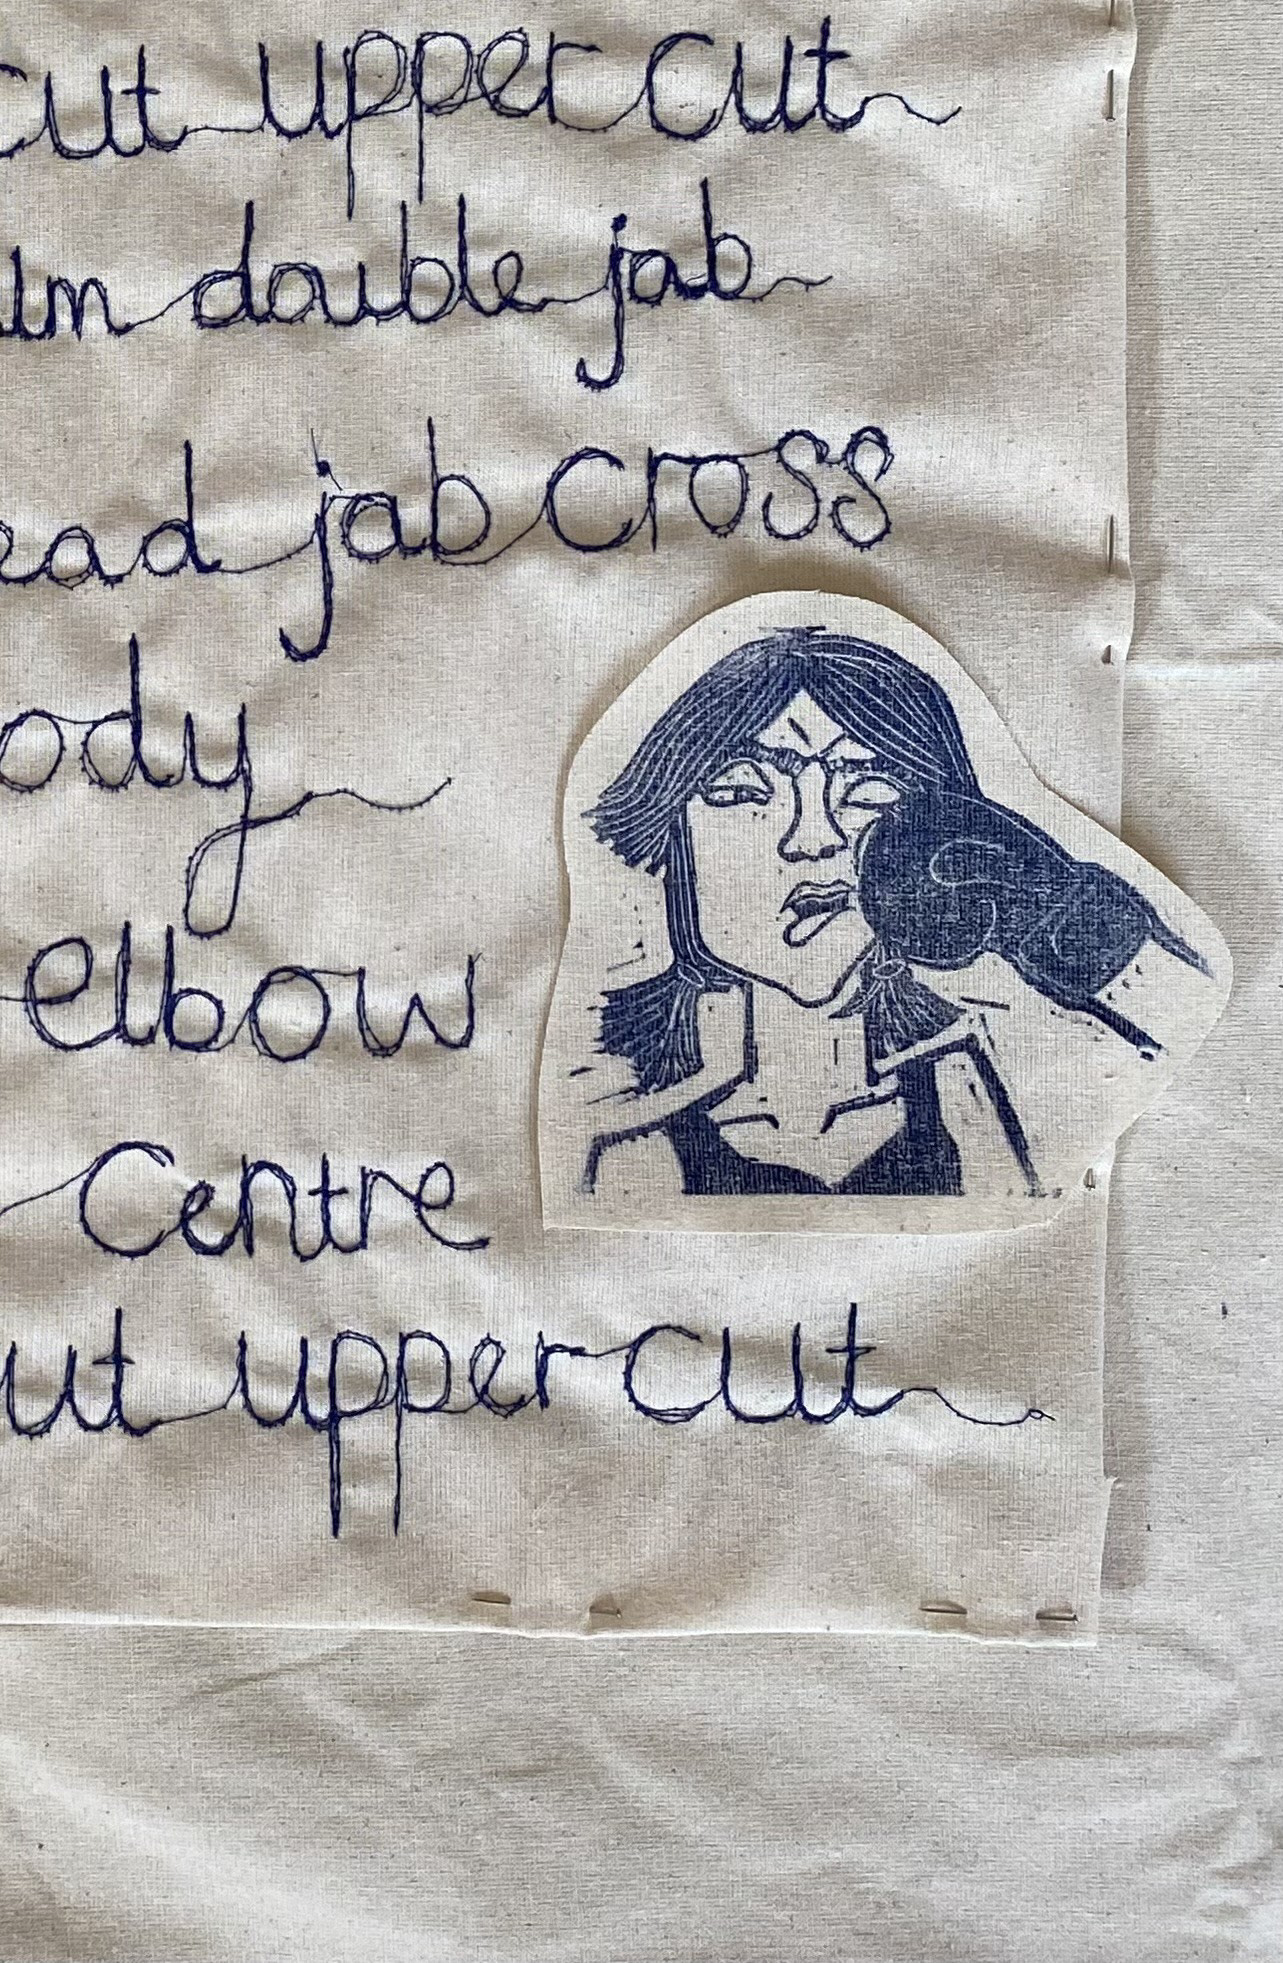 cut upper cut
double jab
jab cross
elbow
Centre
upper cut